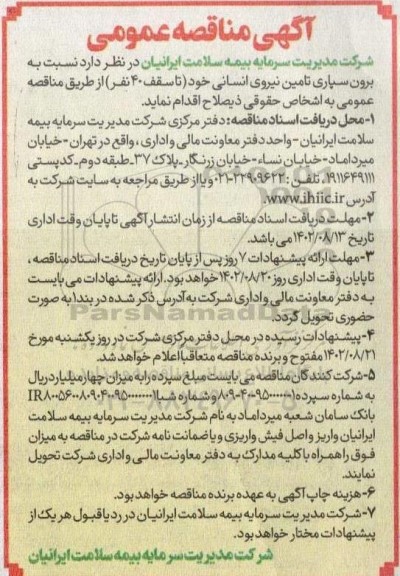 آگهی مناقصه عمومی
شرکت مدیریت سرمایه بیمه سلامت ایرانیان در نظر دارد نسبت به
برون سپاری تامین نیروی انسانی خود (تا سقف ۴۰ نفر) از طریق مناقصه
عمومی به اشخاص حقوقی ذیصلاح اقدام نماید.
۱-محل دریافت اسناد مناقصه: دفتر مرکزی شرکت مدیریت سرمایه بیمه
سلامت ایرانیان - واحد دفتر معاونت مالی و اداری، واقع در تهران - خیابان
میرداماد - خیابان نساء - خیابان زرنگار - پلاک ۳۷ - طبقه دوم - کدپستی
۱۹۱۱۶۴۹۱۱۱، تلفن: ۲۲۹۰۹۶۲۲-۰۲۱ و یا از طریق مراجعه به سایت شرکت به
آدرس www.ihiic.ir.
۲-مهلت دریافت اسناد مناقصه از زمان انتشار آگهی تا پایان وقت اداری
تاریخ ۱۴۰۲/۰۸/۱۳ می باشد.
۳-مهلت ارائه پیشنهادات ۷ روز پس از پایان تاریخ دریافت اسناد مناقصه،
تا پایان وقت اداری روز ۱۴۰۲/۰۸/۲۰ خواهد بود. ارائه پیشنهادات می بایست
به دفتر معاونت مالی و اداری شرکت به آدرس ذکر شده در بند۱ به صورت
حضوری تحویل گردد.
۴-پیشنهادات رسیده در محل دفتر مرکزی شرکت در روز یکشنبه مورخ
۱۴۰۲/۰۸/۲۱ مفتوح و برنده مناقصه متعاقبا اعلام خواهد شد.
۵-شرکت کنندگان مناقصه می بایست مبلغ سپرده را به میزان چهار میلیارد ریال
به شماره سپرده و شماره شبا
بانک سامان شعبه میرداماد به نام شرکت مدیریت سرمایه بیمه سلامت
ایرانیان واریز و اصل فیش واریزی و یا ضمانت نامه شرکت در مناقصه به میزان
فوق را همراه با کلیه مدارک به دفتر معاونت مالی و اداری شرکت تحویل
نمایند.
۶-هزینه چاپ آگهی به عهده برنده مناقصه خواهد بود.
۷-شرکت مدیریت سرمایه بیمه سلامت ایرانیان در رد یا قبول هر یک از
پیشنهادات مختار خواهد بود.
شرکت مدیریت سرمایه بیمه سلامت ایرانیان
ParsNamadData